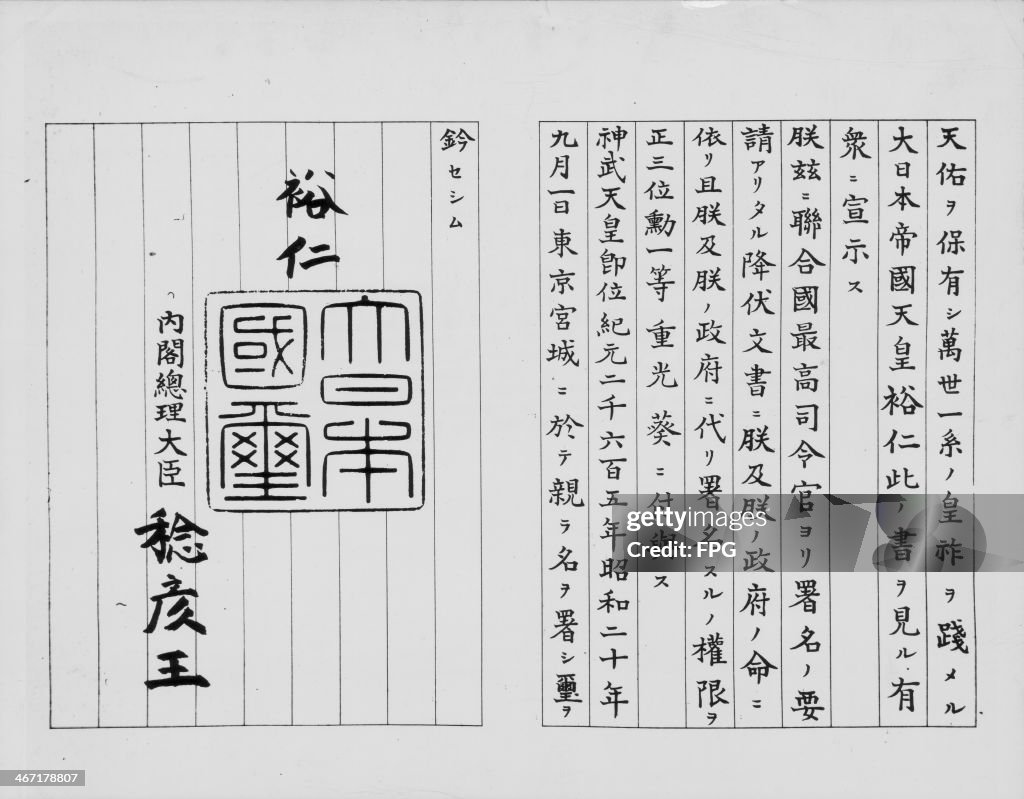 天佑ヲ保有シ萬世一系ノ皇祚ヲ踐メル
大日本帝國天皇裕仁此ノ書ヲ見ル有
衆ニ宣示ス
朕玆ニ聯合國最高司令官ヨリ署名ノ要
請アリタル降伏文書ニ朕及朕ノ政府ノ命ニ
依リ且朕及朕ノ政府ニ代リ署名スルノ權限ヲ
正三位勳一等重光葵ニ付與ス
神武天皇卽位紀元二千六百五年昭和二十年
九月一日東京宮城ニ於テ親ラ名ヲ署シ璽ヲ
鈐セシム
裕仁
大日本
國璽
內閣總理大臣 稔彦王
gettyimages
Credit: FPG
467178807